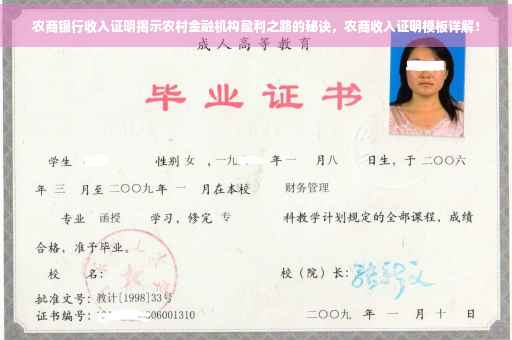 农商银行收入证明揭示农村金融机构盈利之路的秘诀，农商收入证明模板详解！
成人高等教育
毕业证书
学生 性别 女 ，一九 年 一 月八 日生，于 二〇〇六
年 三 月至 二〇〇九 年 一 月在本校 财务管理
专业 函授 学习，修完 专 科教学计划规定的全部课程，成绩
合格，准予毕业。
校 名： 校（院）长：
批准文号：教计[1998]33号
证书编号： 06001310 二〇〇九 年 一 月 十 日